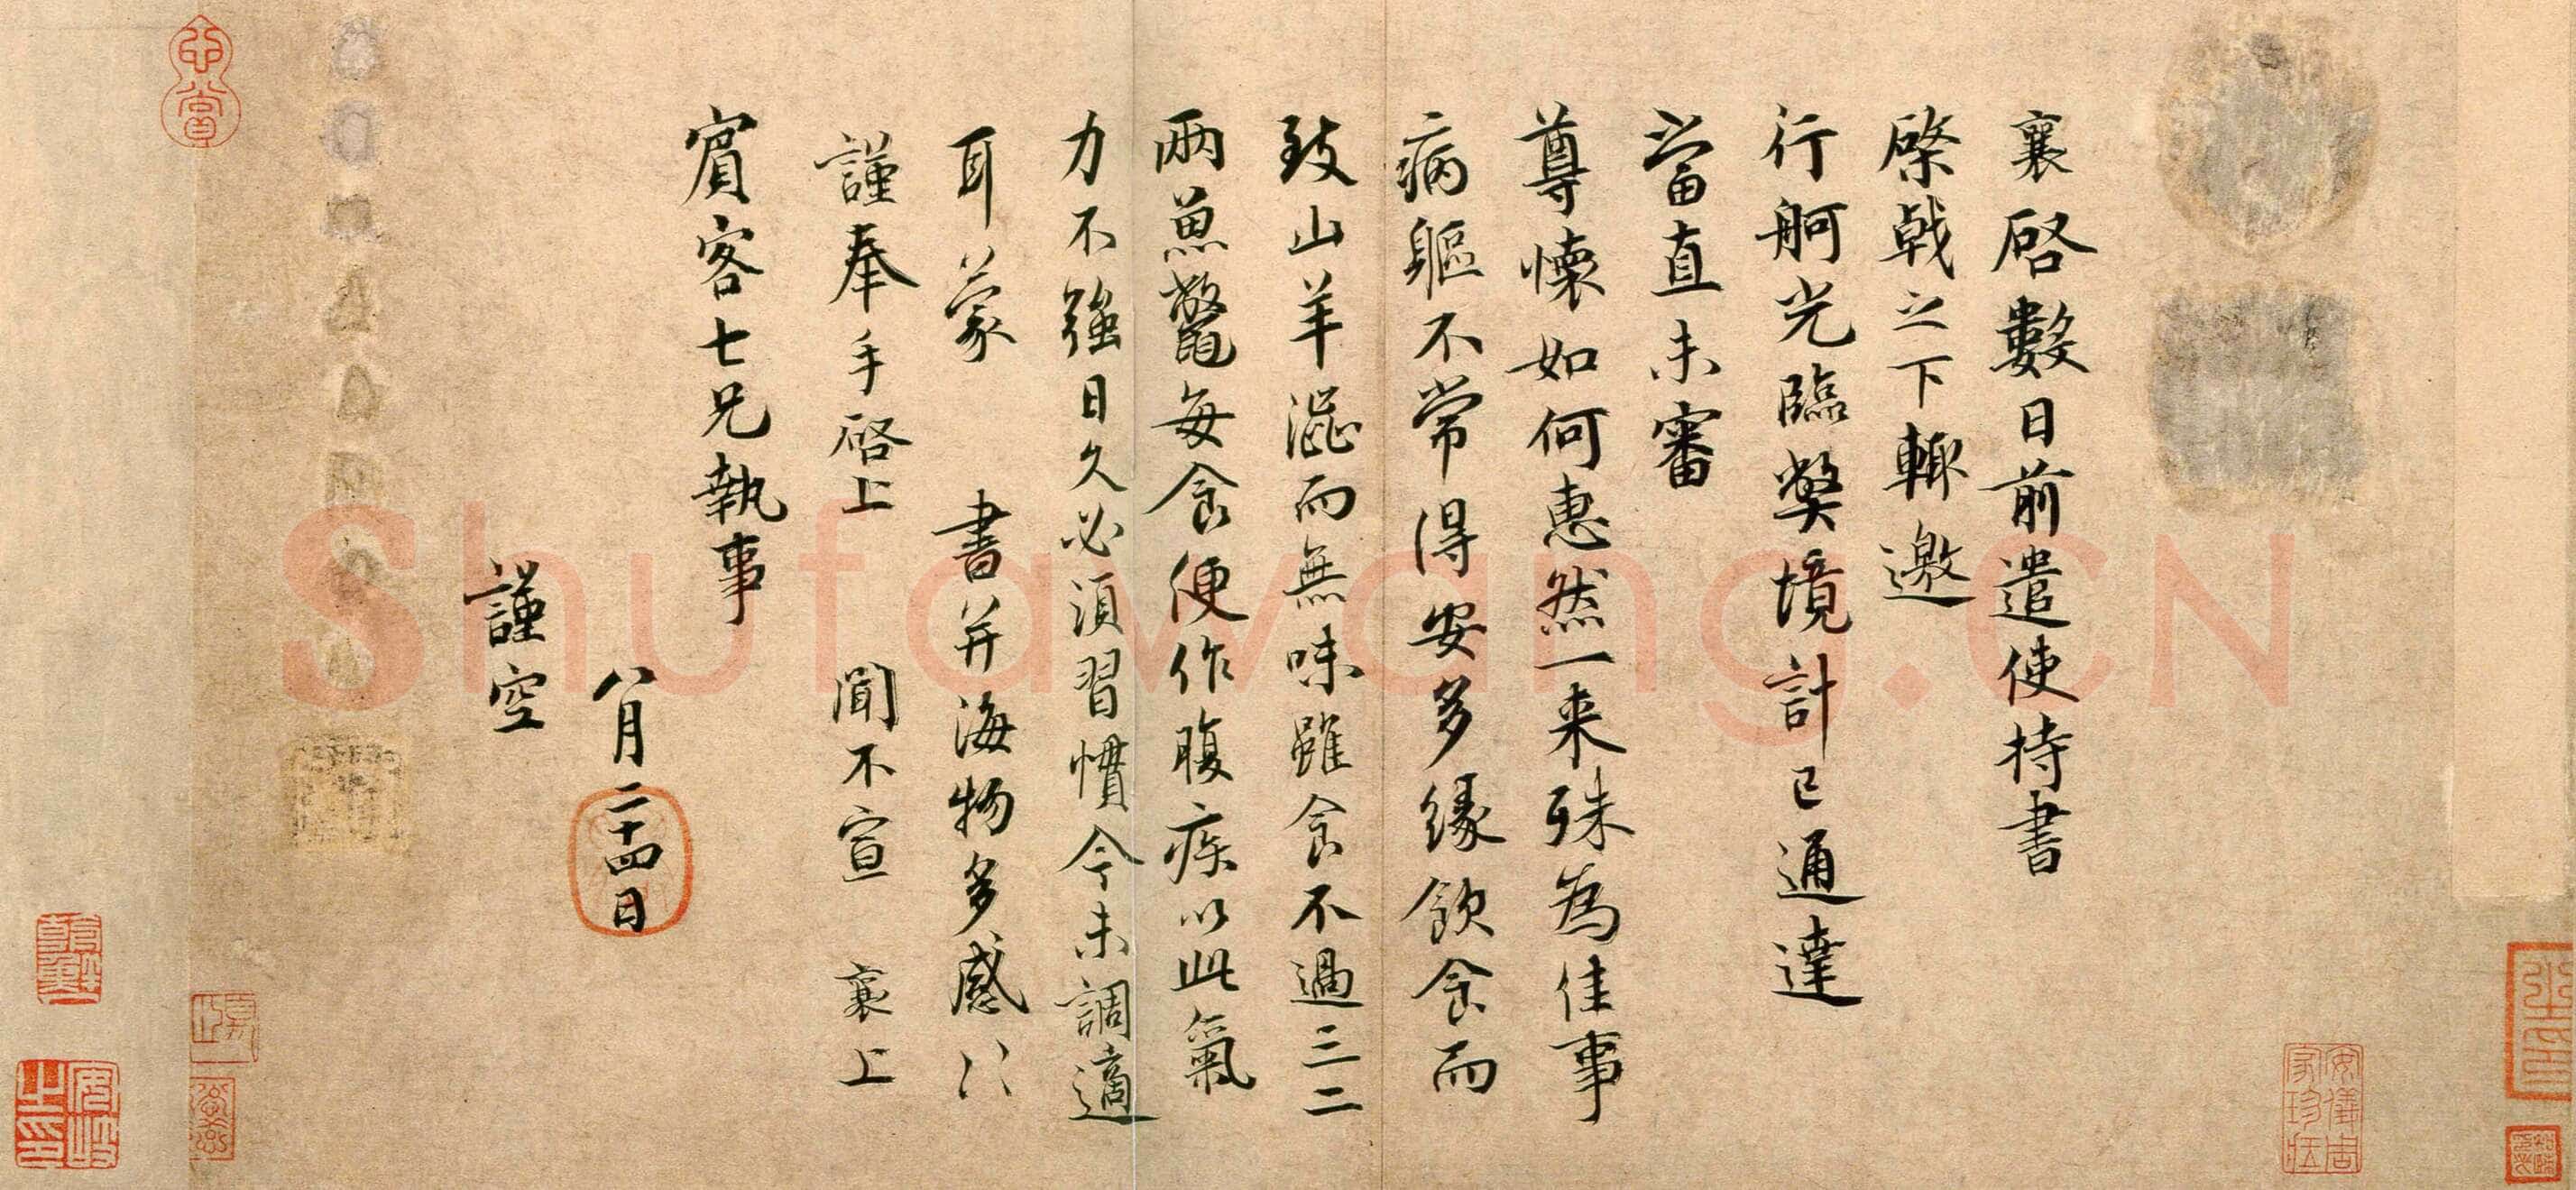 襄啓數日前遣使持書
棨戟之下輙邀
行舸光臨弊境計已通達
當直未審
尊懷如何惠然一来殊為佳事
病軀不常得安多緣飲食而
致山羊澁而無味雖食不過三二
兩魚鼈每食便作腹疾以此氣
力不強日久必須習慣今未調適
耳蒙 書并海物多感〻
謹奉手啓上 聞不宣 襄上
賔客七兄執事
八月二十四日
謹空
安儀周家珍藏
Shufawang.CN